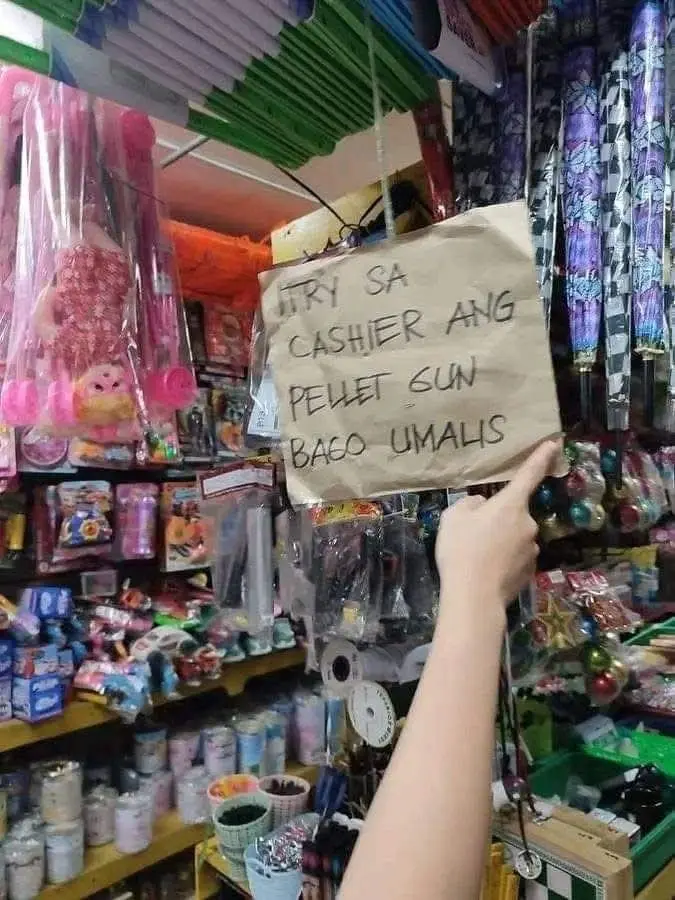 ITRY SA
CASHIER ANG
PELLET GUN
BAGO UMALIS